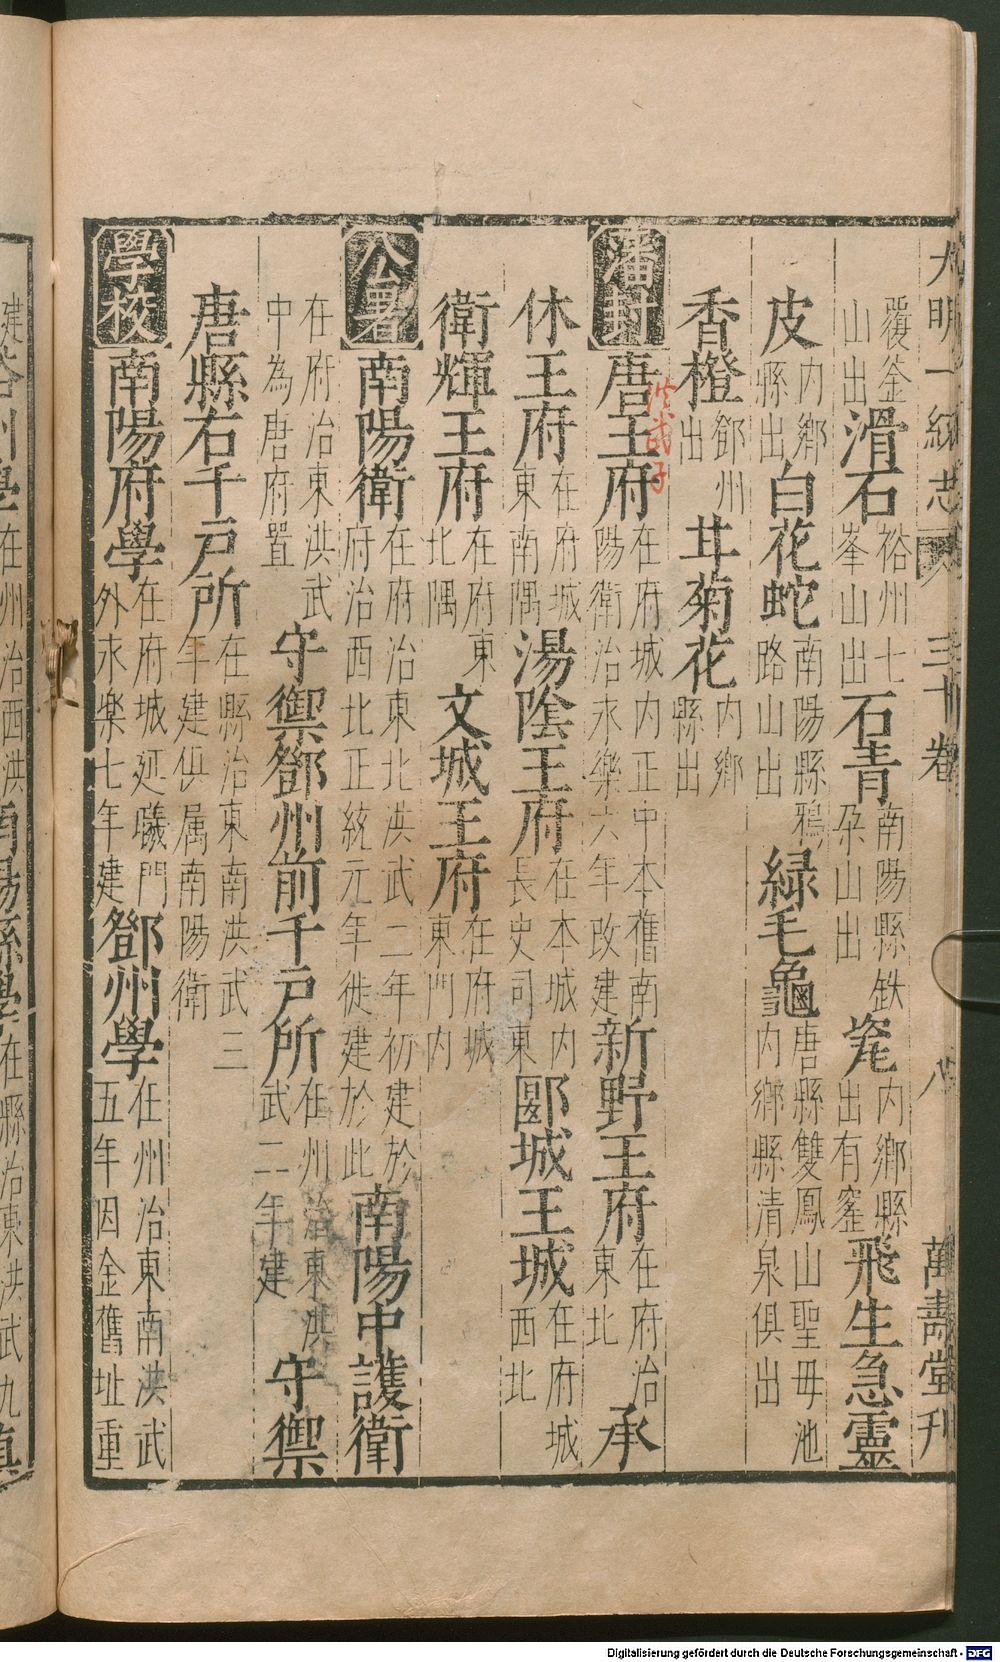 大明一統志 三十卷 八 萬壽堂刊
覆釜山出 滑石 裕州七峯山出 石青 南陽縣鉄朶山出 瓷 内鄉縣出有窰 飛生急靈
皮 内鄉縣出 白花蛇 南陽縣鴉路山出 緑毛龜 唐縣雙鳳山聖毋池内鄉縣清泉俱出
香橙 鄧州出 甘菊花 内鄉縣出
藩封 唐王府 在府城内正中本舊南陽衛治永樂六年改建 新野王府 在府治東北 承
洪武子
休王府 在府城東南隅 湯陰王府 在本城内長史司東 郾城王城 在府城西北
衛輝王府 在府東北隅 文城王府 在府城東門内
公署 南陽衛 在府治東北洪武二年初建於府治西北正統元年徙建於此 南陽中護衛
在府治東洪武中為唐府置 守禦鄧州前千戸所 在州治東洪武二年建 守禦
唐縣右千戸所 在縣治東南洪武三年建俱属南陽衛
學校 南陽府學 在府城延曦門外永樂七年建 鄧州學 在州治東南洪武五年因金舊址重
建 裕州學 在州治西洪 南陽縣學 在縣治東洪武九 鎮
Digitalisierung gefördert durch die Deutsche Forschungsgemeinschaft - DFG